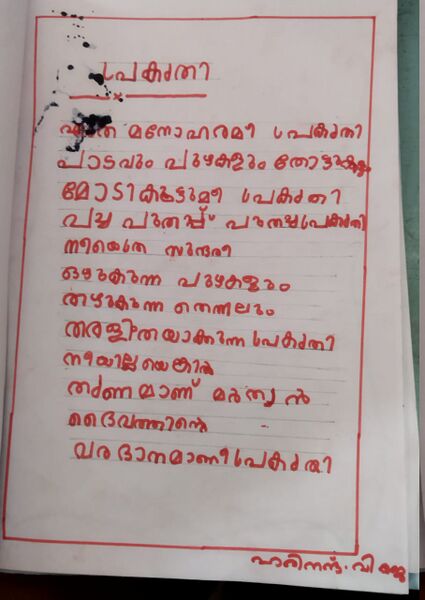 പ്രകൃതി
എത്ര മനോഹരമീ പ്രകൃതി
പാടവും പുഴകളും തോടുകളും
മോടികൂട്ടുമീ പ്രകൃതി
പച്ച പുതപ്പ് പുതച്ച പ്രകൃതി
നീയെത്ര സുന്ദരീ
ഒഴുകുന്ന പുഴകളും
തഴുകുന്ന തെന്നലും
തരളിതയാക്കുന്ന പ്രകൃതി
നീയില്ലയെങ്കിൽ
തൃണമാണ് മർത്യൻ
ദൈവത്തിന്റെ
വരദാനമാണീ പ്രകൃതി
ഹരിനന്ദ്. വി